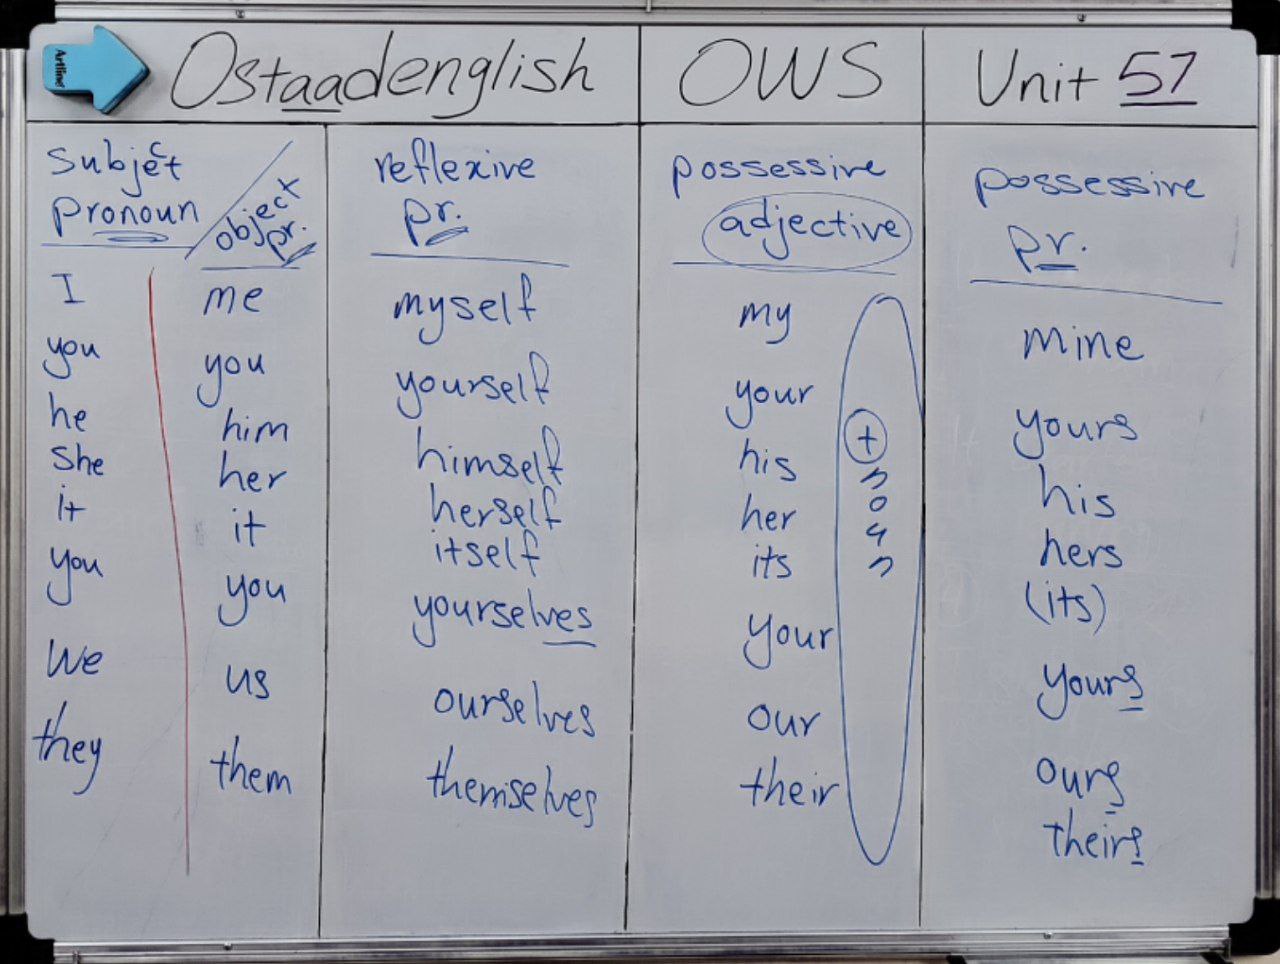 Artline
Ostaadenglish
OWS
Unit 57
subject
pronoun
object
pr.
reflexive
pr.
possessive
adjective
possessive
pr.
I
me
myself
my
mine
you
you
yourself
your
yours
he
him
himself
his
his
she
her
herself
her
hers
it
it
itself
its
(its)
you
you
yourselves
your
yours
we
us
ourselves
our
ours
they
them
themselves
their
theirs
+
noun